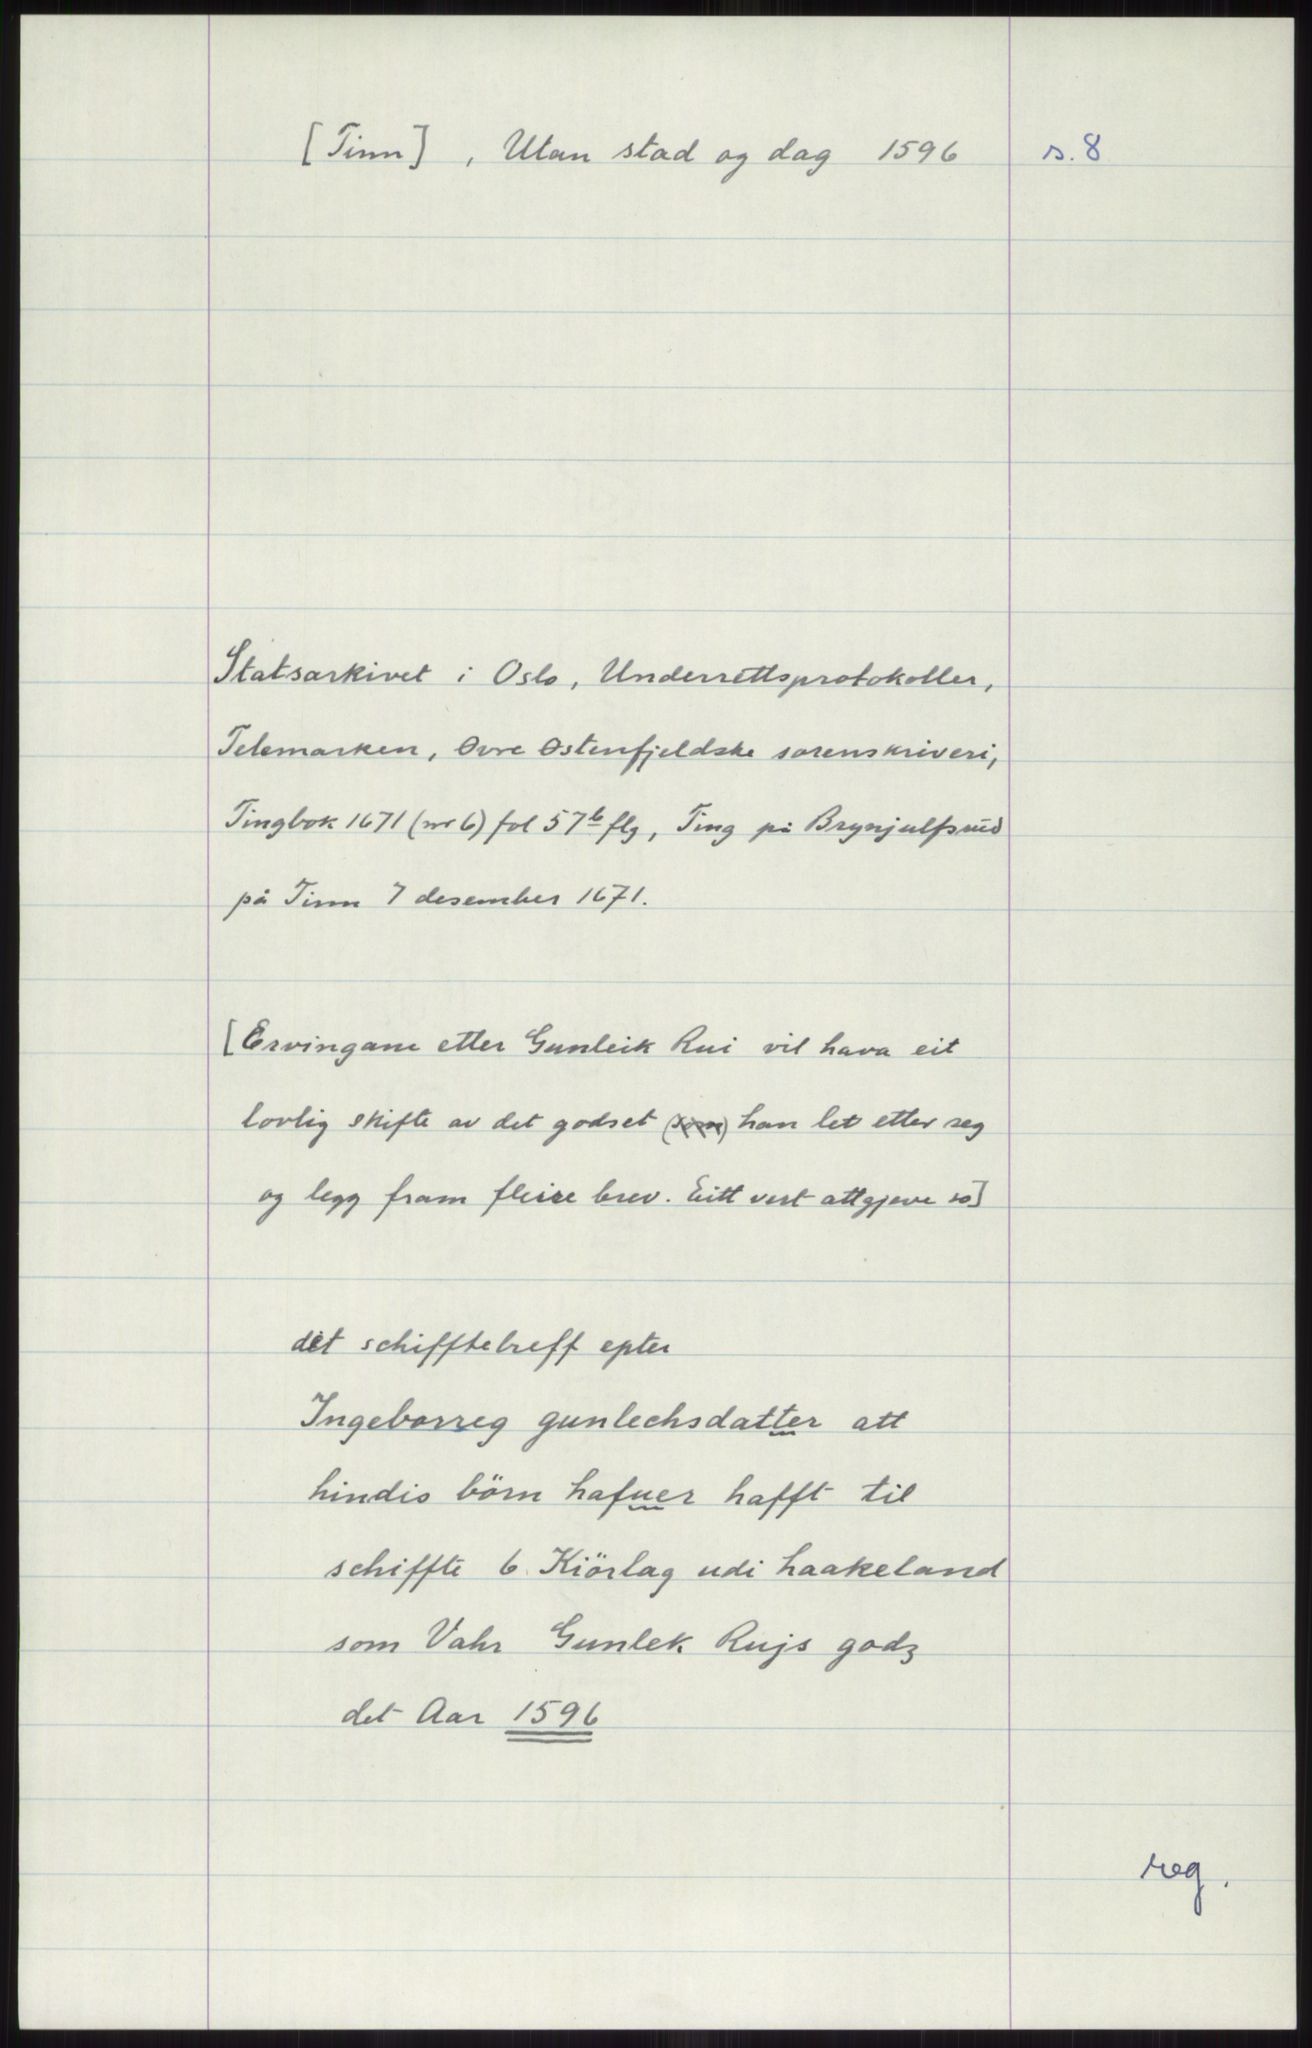 [Tinn], Utan stad og dag 1596 s. 8
Statsarkivet i Oslo, Underrettsprotokoller,
Telemarken, Øvre Østenfjeldske sorenskriveri,
Tingbok 1671 (nr 6) fol 57b flg, Ting på Brynjulfsrud
på Tinn 7 desember 1671.
[Ervingane etter Gunleik Rui vil hava eit
lovlig skifte av det godset han let etter seg
og legg fram fleire brev. Eitt vert attgjeve so]
det schifftebreff epter
Ingeborreg gunlechsdatter att
hindis börn hafuer hafft til
schiffte 6 Kiörlag udi haakeland
som Vahr Gunlek Rujs godz
det Aar 1596
reg.